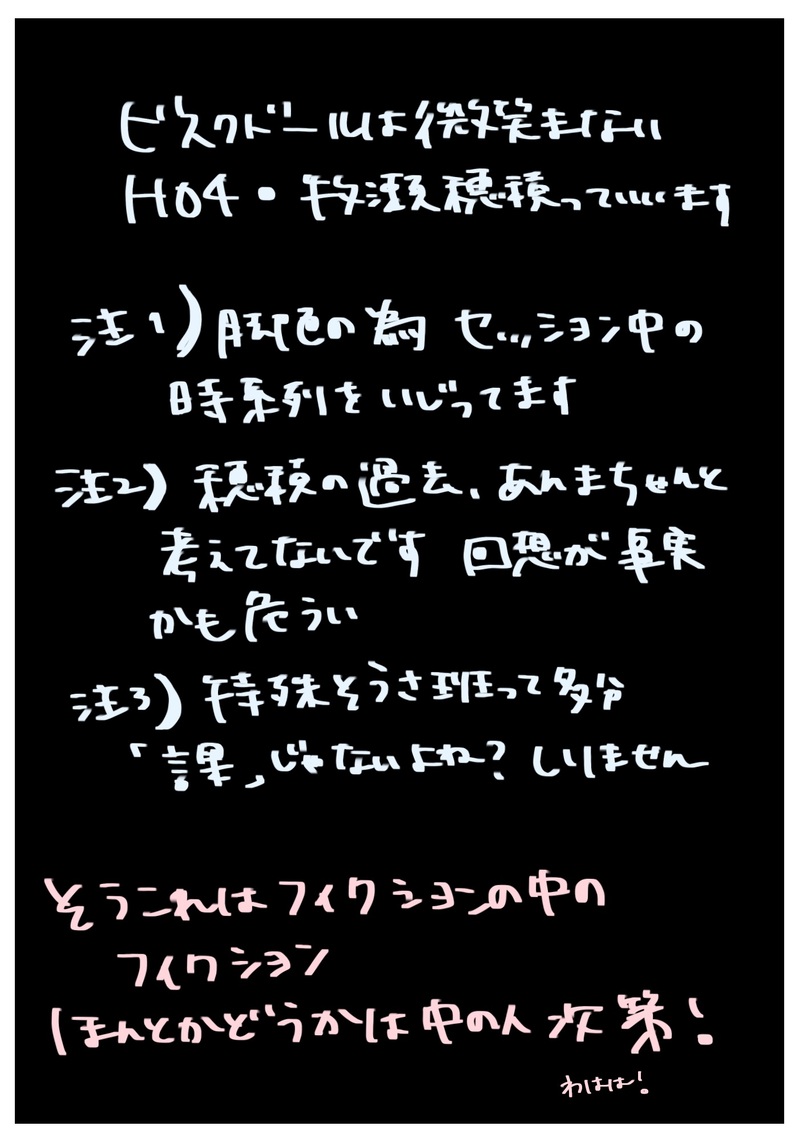 ビスクドールは微笑まない
HO4・牧瀬穂積っていいます
注1)脚色の為 セッション中の
時系列をいじってます
注2)穂積の過去、あんまちゃんと
考えてないです 回想が事実
かも危うい
注3)特殊そうさ班って多分
「課」じゃないよね?しりません
そうこれはフィクションの中の
フィクション
ほんとかどうかは中の人次第!
わはは!